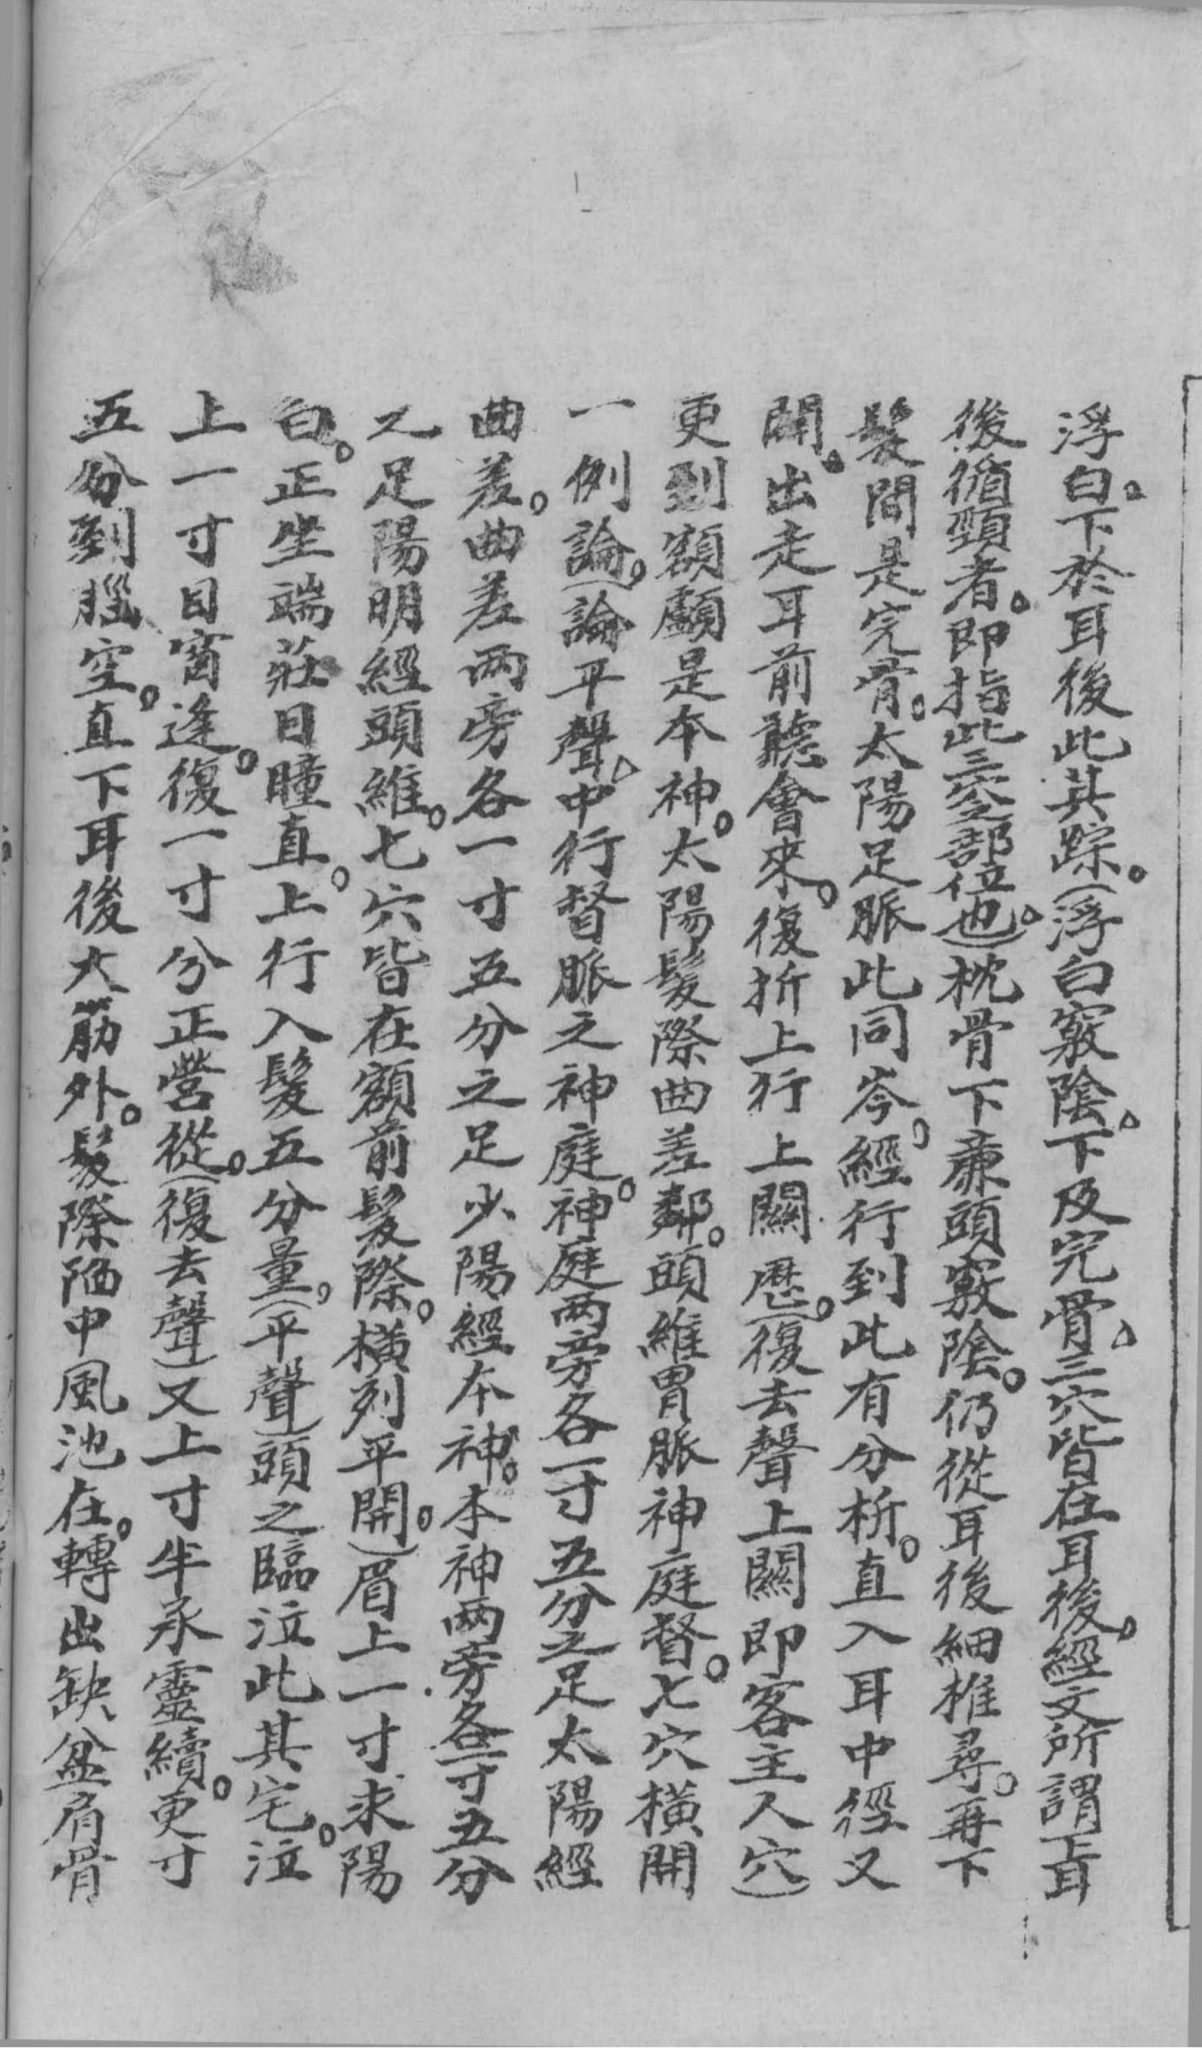 浮白。下於耳後此其踪。(浮白竅陰。下及完骨。三穴皆在耳後。經文所謂下耳
後循頸者。即指此三穴部位也。)枕骨下廉頭竅陰。仍從耳後細推尋。再下
髮間是完骨。太陽足脈此同岑。經行到此有分析。直入耳中徑又
開。出走耳前聽會來。復折上行上關歷。(復去聲上關即客主人穴)
更到額顱是本神。太陽髮際曲差鄰。頭維胃脈神庭督。七穴橫開
一例論。(論平聲。中行督脈之神庭。神庭兩旁各一寸五分之足太陽經
曲差。曲差兩旁各一寸五分之足少陽經本神。本神兩旁各一寸五分
又足陽明經頭維。七穴皆在額前髮際。橫列平開。)眉上一寸求陽
白。正坐端莊目瞳直。上行入髮五分量。(平聲)頭之臨泣此其宅。泣
上一寸目窗逢。復一寸兮正營從。(復去聲)又上寸半承靈續。更寸
五分到腦空。直下耳後大筋外。髮際陷中風池在。轉出缺盆肩骨